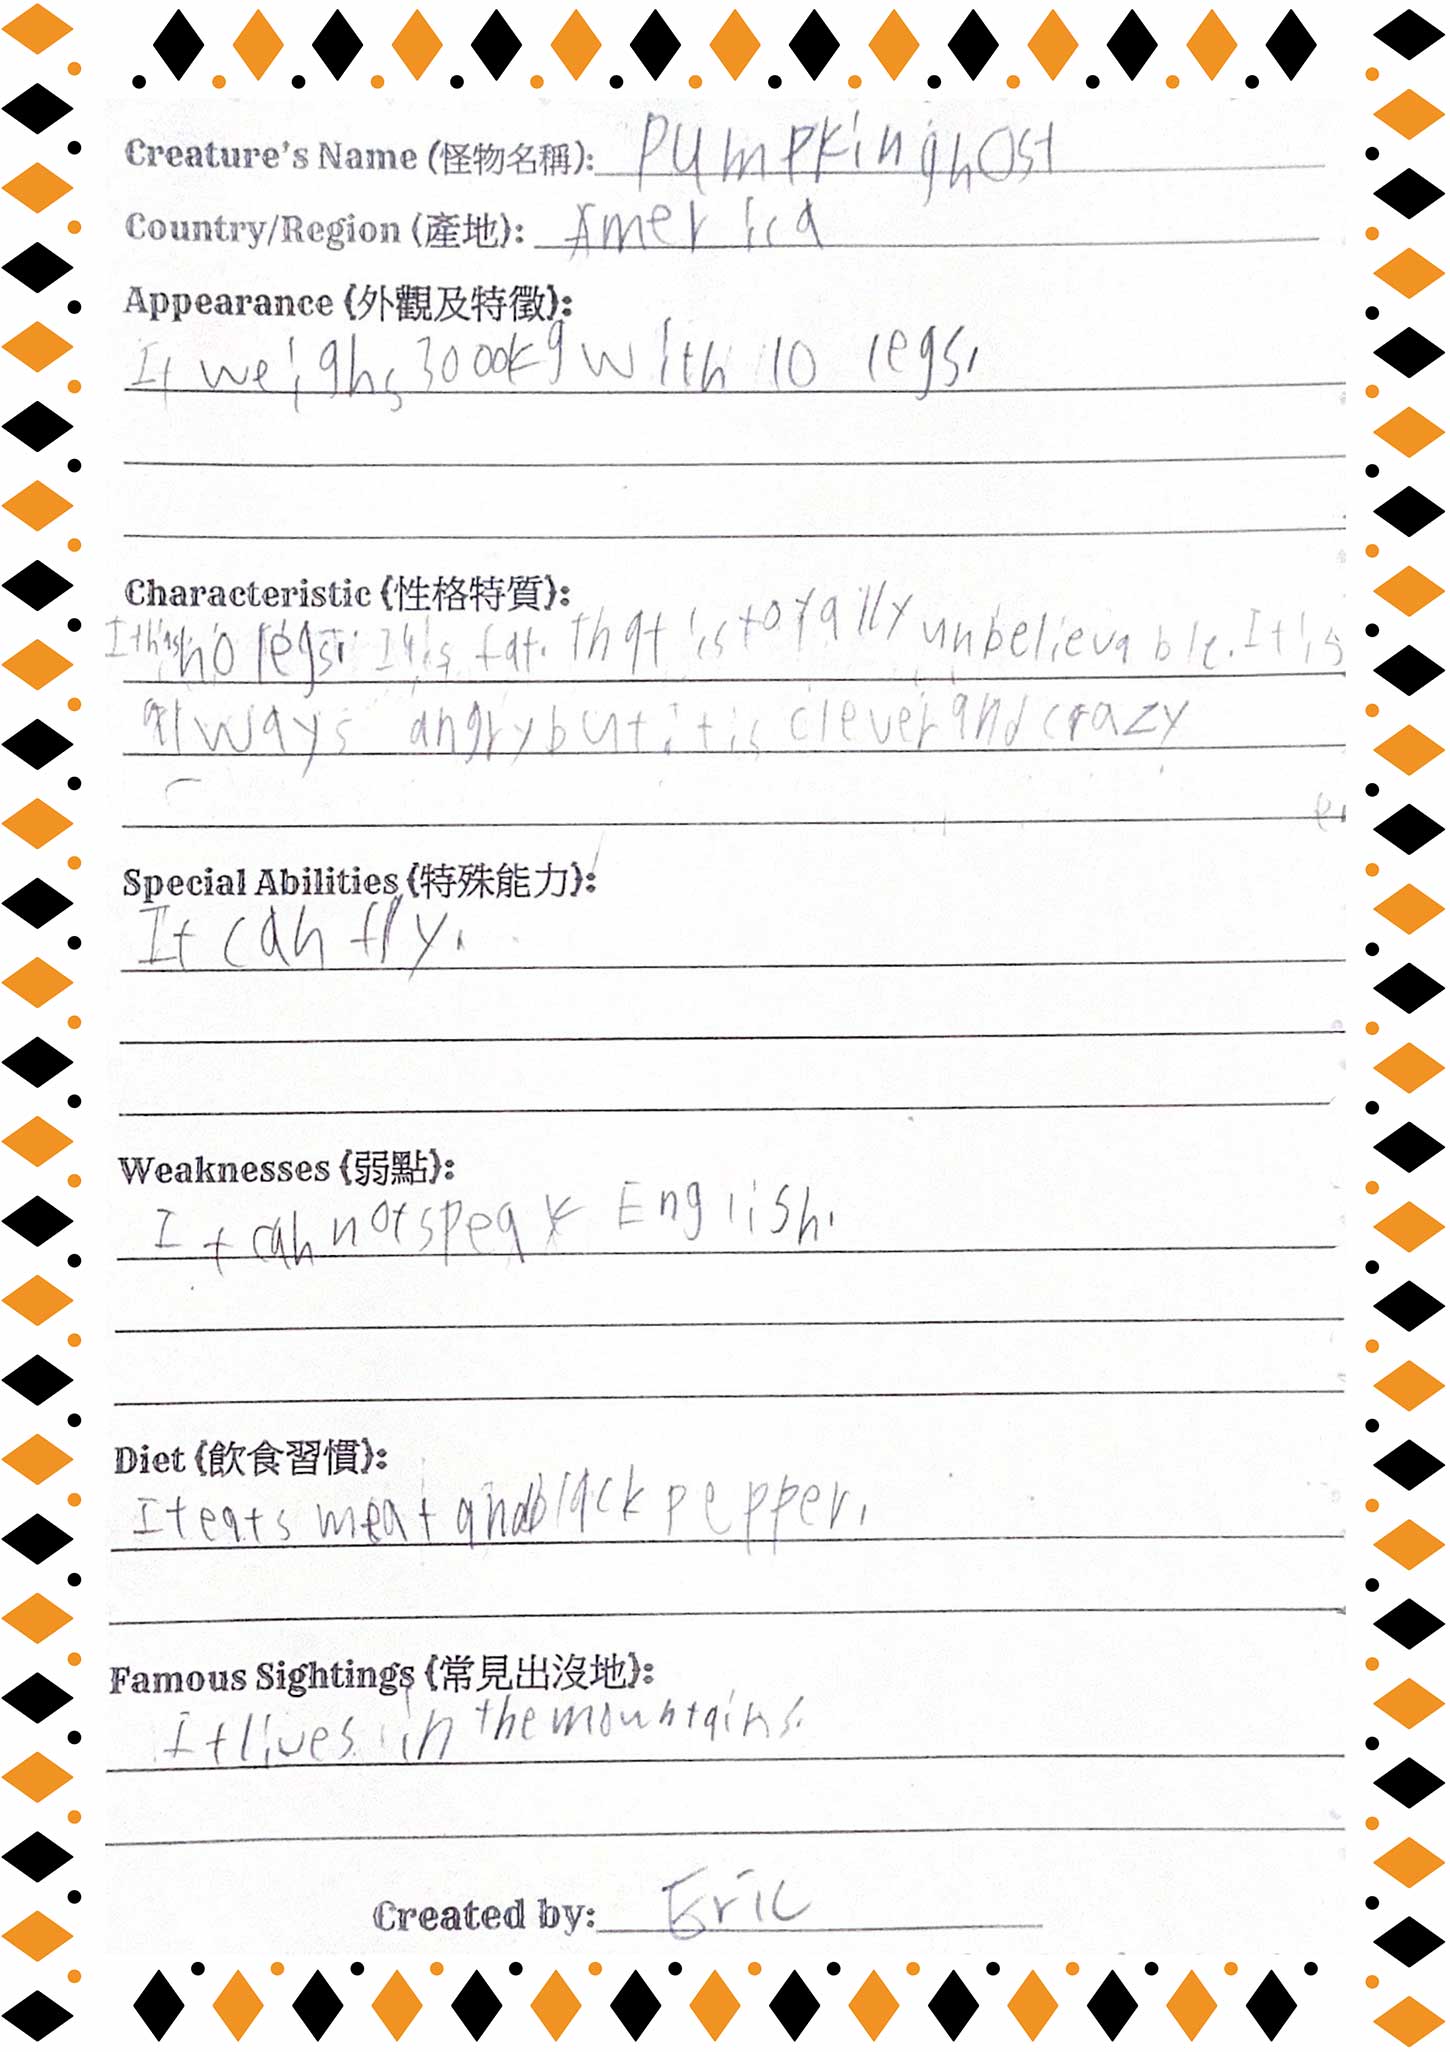 Creature's Name (怪物名稱): Pumpkin ghost
Country/Region (產地): America
Appearance (外觀及特徵):
It weighs 3000kg with 10 legs.
Characteristic (性格特質):
It has no legs. It is fat. That is totally unbelievable. It is
always angry but it is clever and crazy
Special Abilities (特殊能力):
It can fly.
Weaknesses (弱點):
It can not speak English.
Diet (飲食習慣):
It eats meat and black pepper.
Famous Sightings (常見出沒地):
It lives in the mountains.
Created by: Eric